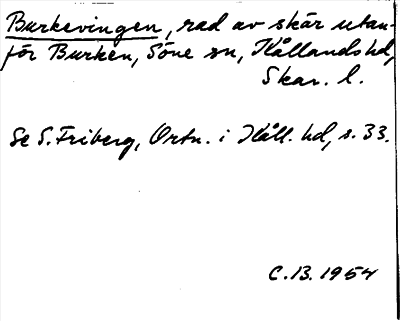 Burkevingen, rad av skär utan-
för Burken, Söne sn, Kållands hd,
Skar. l.
Se S. Friberg, Ortn. i Kåll. hd, s. 33.
C.B. 1954